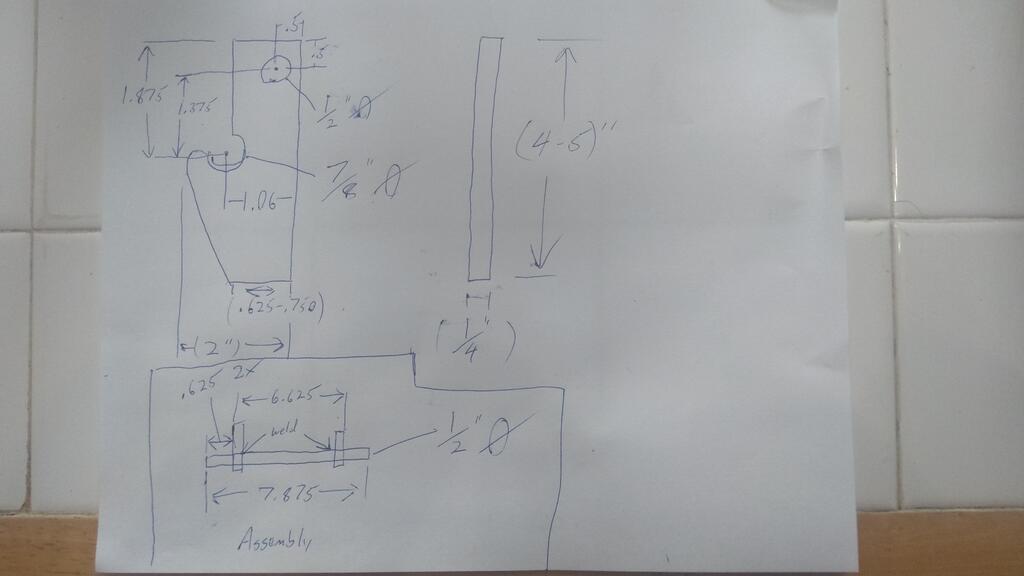 .5
.5
1.875
1.375
1/2" Ø
7/8" Ø
1.06
(4-6)"
(.625-.750)
(1/4")
(2")
.625 2x
6.625
weld
1/2" Ø
7.875
Assembly